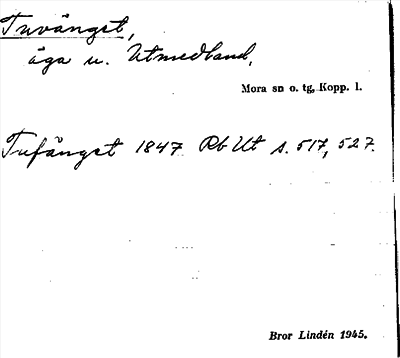 Tuvängst,
äga u. Utmedland,
Mora sn o. tg, Kopp. l.
Tufängst 1847 Rb Ut s. 517, 527.
Bror Lindén 1945.